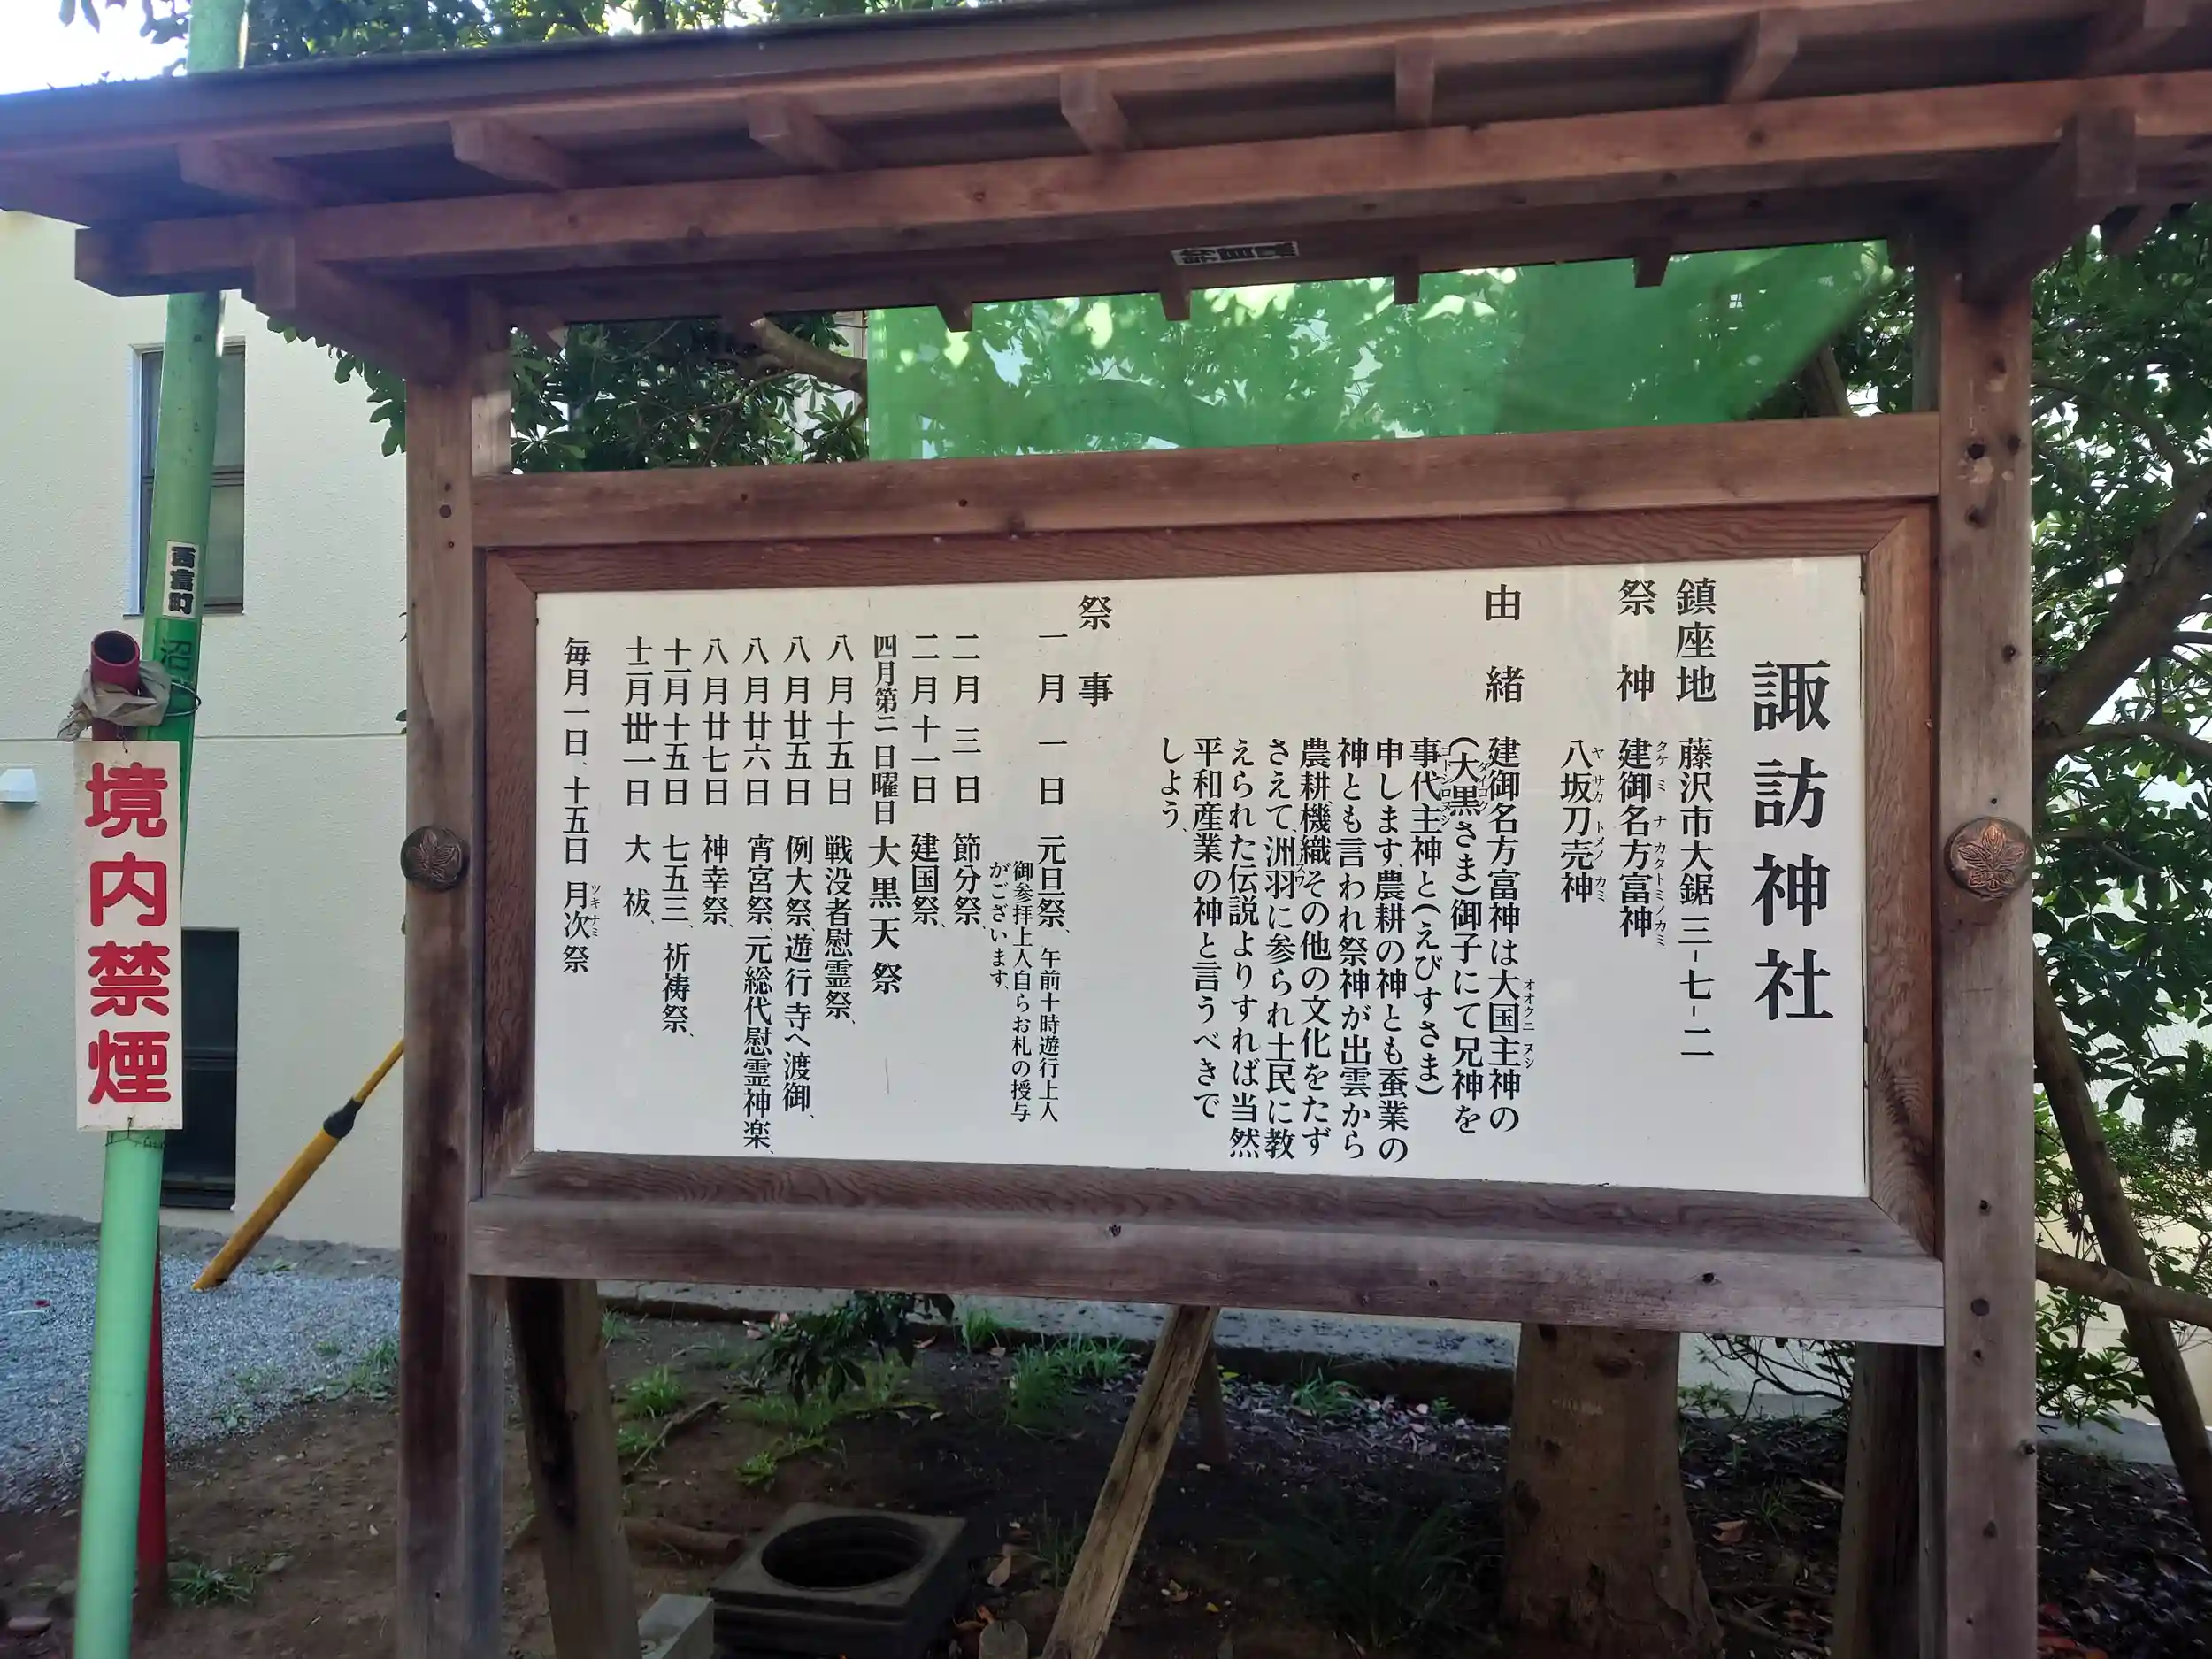 諏訪神社
鎮座地　藤沢市大鋸三-七-二
祭神　建御名方富神
タケミナカタトミノカミ
八坂刀売神
ヤサカトメノカミ
由緒　建御名方富神は大国主神の
オオクニヌシ
(大黒さま)御子にて兄神を
ダイコク
事代主神と(えびすさま)
コトシロヌシ
申します、農耕の神とも蚕業の
神とも言われ祭神が出雲から
農耕、機織、その他の文化をたず
さえて、洲羽に参られ土民に教
えられた伝説よりすれば当然
平和産業の神と言うべきで
しよう、
祭事
一月一日　元旦祭、午前十時遊行上人
御参拝上人自らお札の授与
がございます、
二月三日　節分祭、
二月十一日　建国祭、
四月第二日曜日　大黒天祭
八月十五日　戦没者慰霊祭、
八月廿五日　例大祭、遊行寺へ渡御、
八月廿六日　宵宮祭、元総代慰霊神楽、
八月廿七日　神幸祭、
十一月十五日　七五三、祈祷祭、
十二月卅一日　大祓、
毎月一日、十五日　月次祭
ツキナミ
境内禁煙
西富町